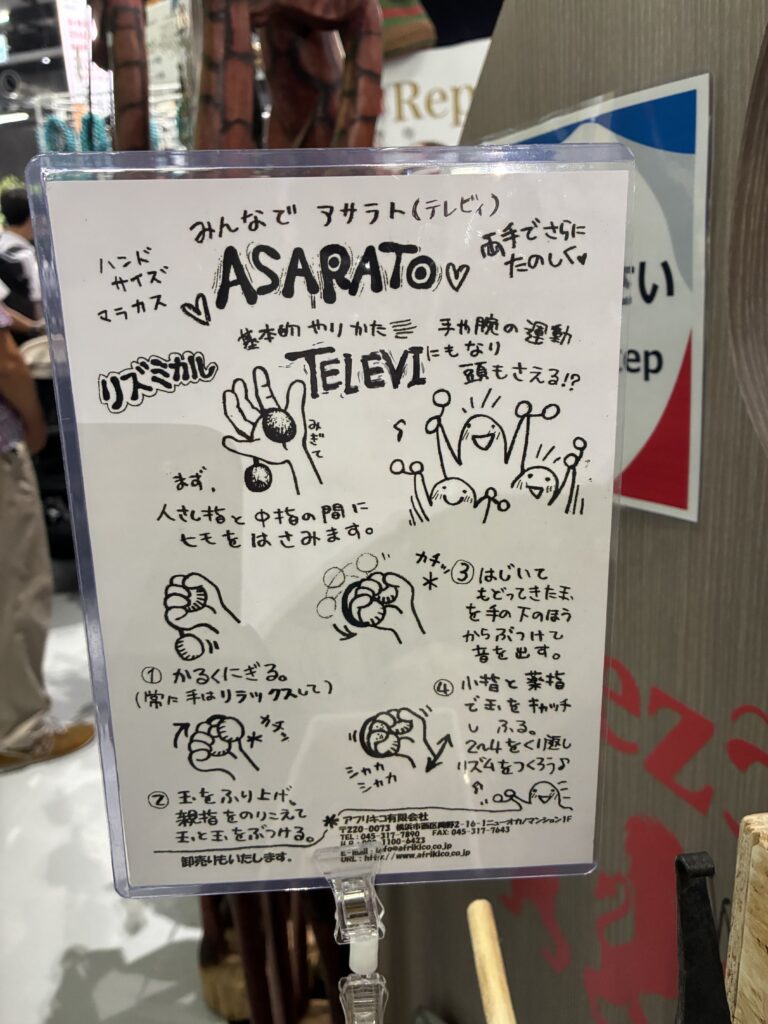 Rep
みんなで アサラト(テレビィ)
ハンド
サイズ
マラカス
ASARATO
両手でさらに
たのしく
基本的 やりかた
手や腕の運動
にもなり
頭もさえる!?
リズミカル
TELEVI
みぎて
まず、
人さし指と中指の間に
ヒモをはさみます。
① かるくにぎる。
(常に手はリラックスして)
カチン
② 玉をふり上げ、
親指をのりこえて
玉と玉をぶつける。
カチッ
③ はじいて
もどってきた玉
を手の下のほう
からぶつけて
音を出す。
④ 小指と薬指
で玉をキャッチ
し ふる。
2〜4をくり返し
リズムをつくろう♪
シャカ
シャカ
アフリキコ有限会社
〒220-0073 横浜市西区岡野2-16-1ニューオカノマンション1F
TEL:045-317-7890 FAX:045-317-7643
1100-6423
E-mail: info@afrikico.co.jp
URL: http://www.afrikico.co.jp
卸売りもいたします。
さい
ep